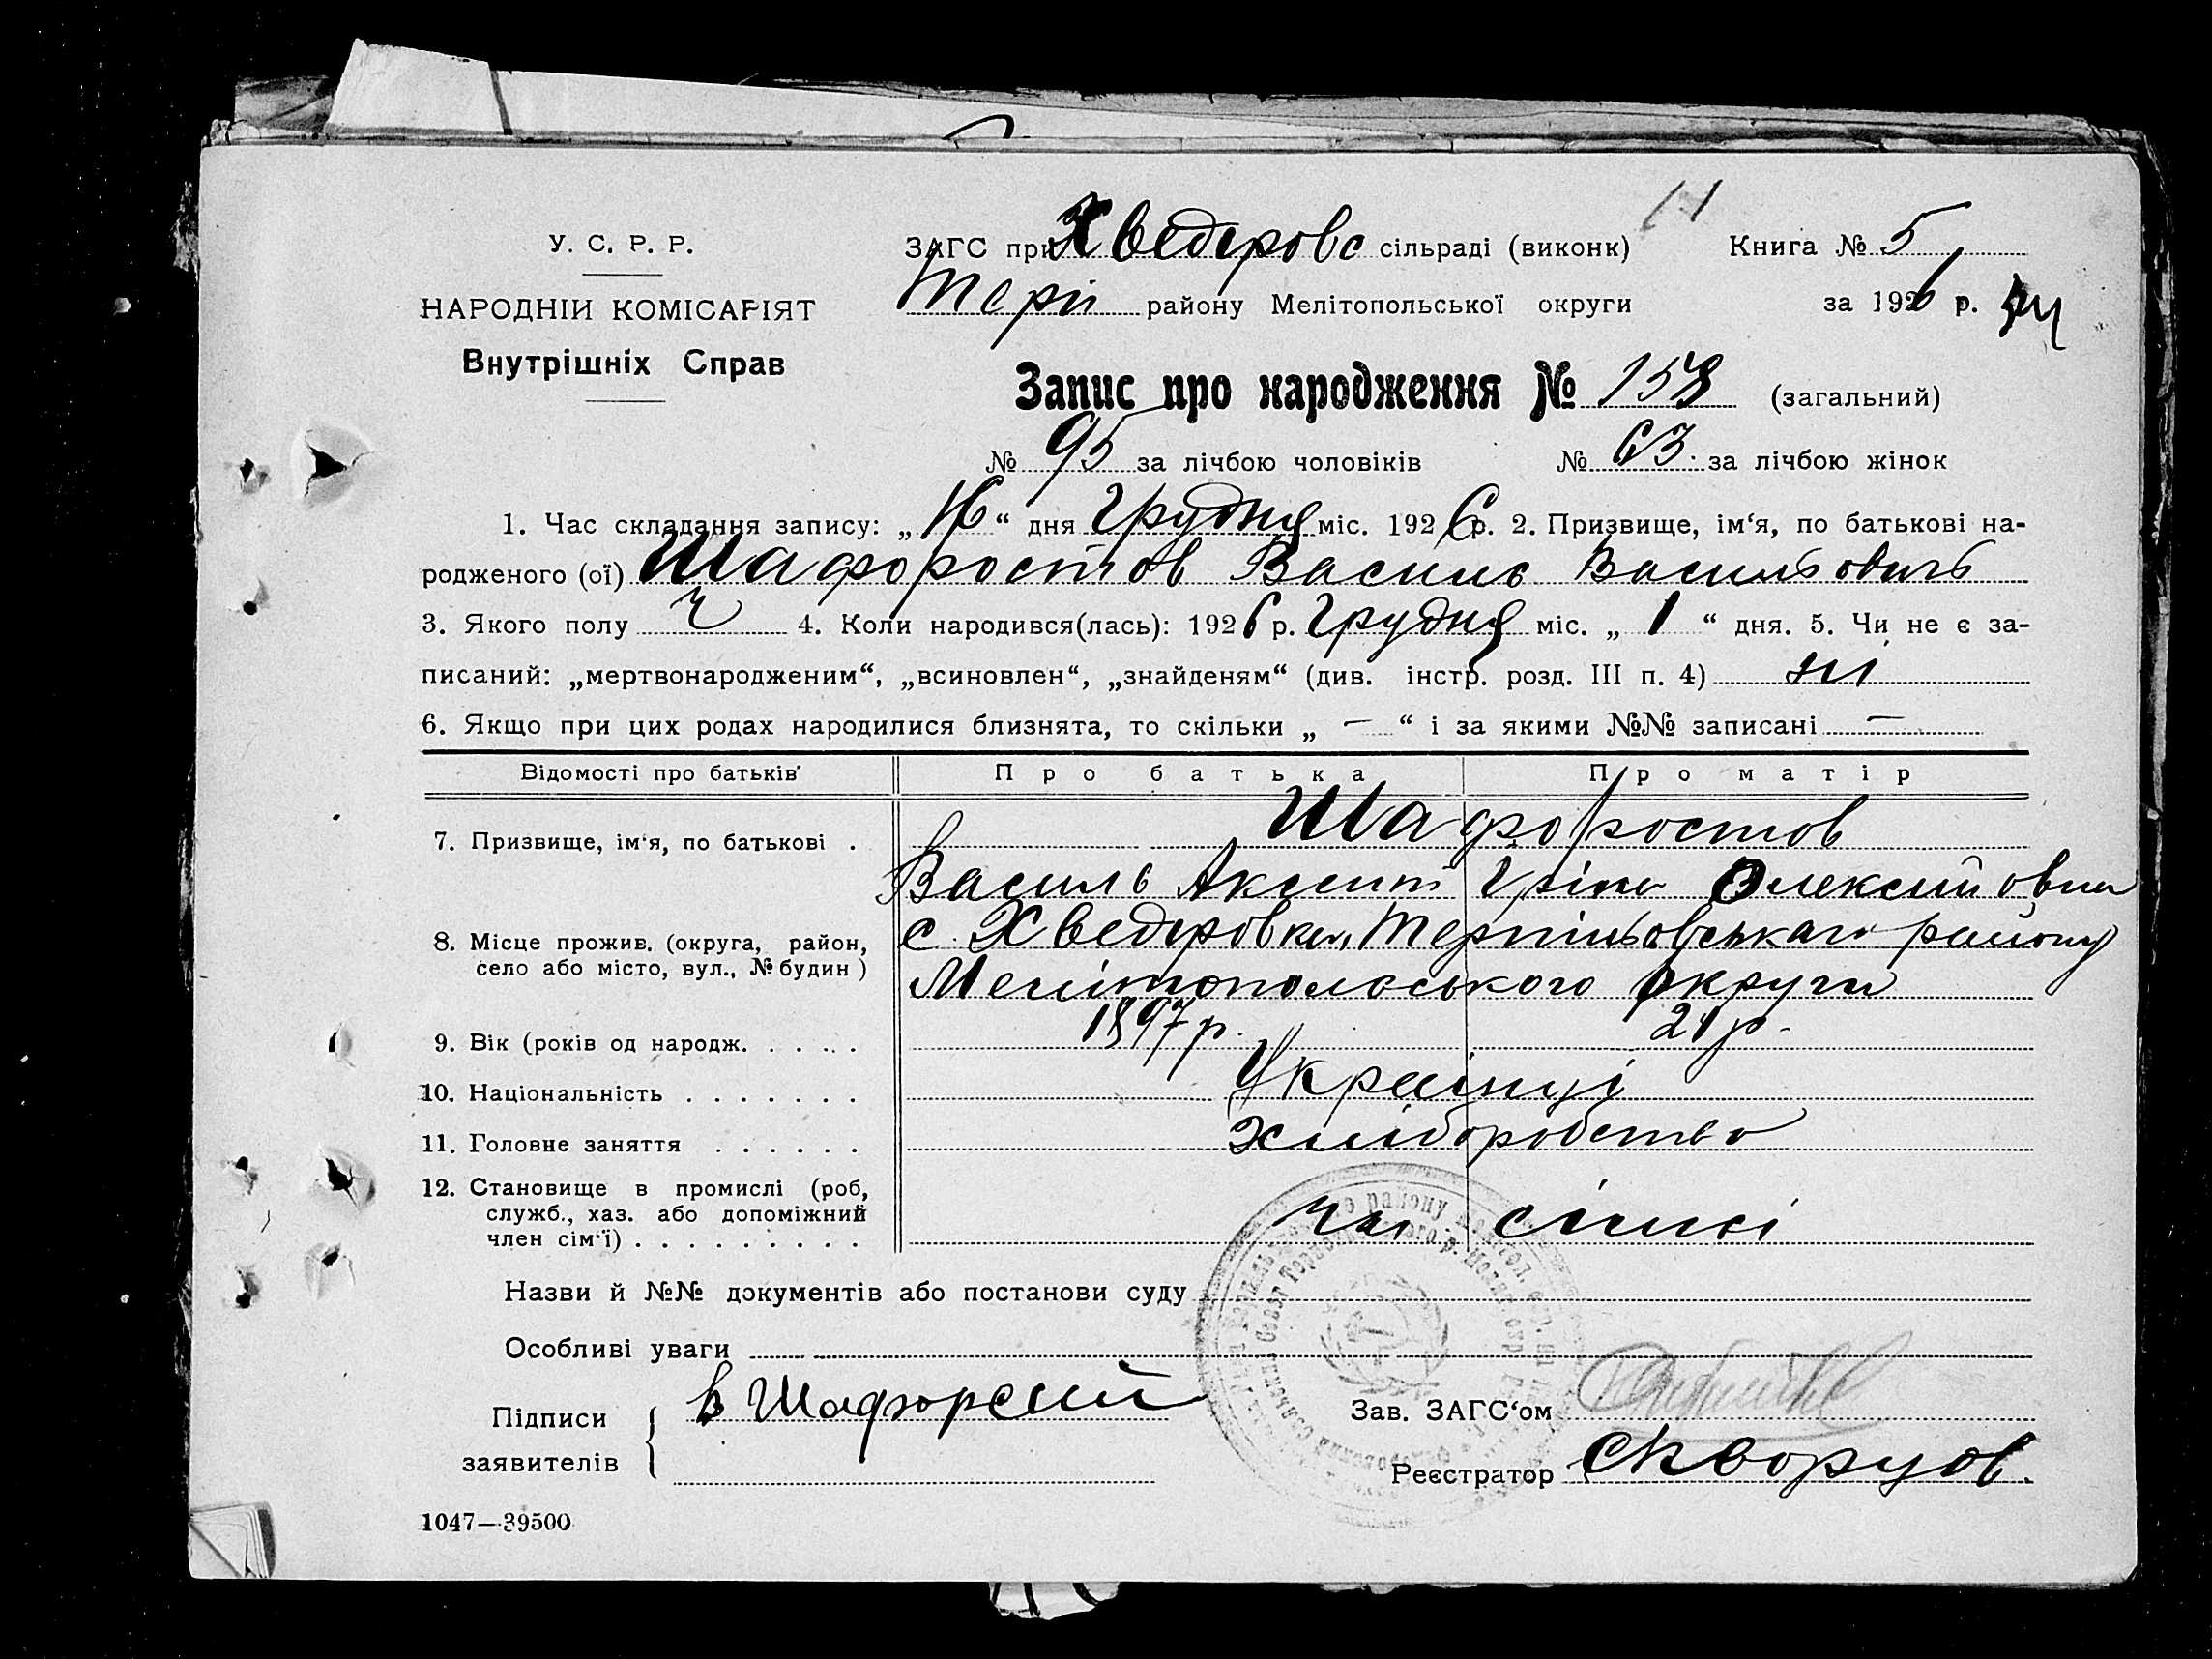 У. С. Р. Р.
НАРОДНІИ КОМІСАРІЯТ
Внутрішніх Справ
ЗАГС при Хведерово сільраді (виконк) Книга № 5
Терп району Мелітопольської округи за 1926 р.
Запис про народження № 158 (загальний)
№ 95 за лічбою чоловіків № 63 за лічбою жінок
1. Час складання запису: „16“ дня Грудня міс. 1926 р. 2. Призвище, ім‘я, по батькові на-
родженого (ої) Шафоростов Василь Васильовичь
3. Якого полу ч 4. Коли народився(лась): 1926 р. Грудня міс. „1“ дня. 5. Чи не є за-
писаний: „мертвонародженим“, „всиновлен“, „знайденям“ (див. інстр. розд. III п. 4) ні
6. Якщо при цих родах народилися близнята, то скільки „ — “ і за якими №№ записані —
Відомості про батьків Про батька Про матір
Шафоростов
7. Призвище, ім‘я, по батькові .
Василь Аксент Олексийовна
8. Місце прожив. (округа, район, с. Хведеровка, район
село або місто, вул., № будин) Мелітопольського округи
9. Вік (років од народж. . . . . . 1897 р. 21 р.
10. Національність . . . . . . . Українці
11. Головне заняття . . . . . . Хліборобство
12. Становище в промислі (роб,
служб., хаз. або допоміжний
член сім‘ї) . . . . . . . . .
Назви й №№ документів або постанови суду
Особливі уваги
Підписи В
заявителів
Зав. ЗАГС‘ом
Реєстратор Скворцов
1047—39500